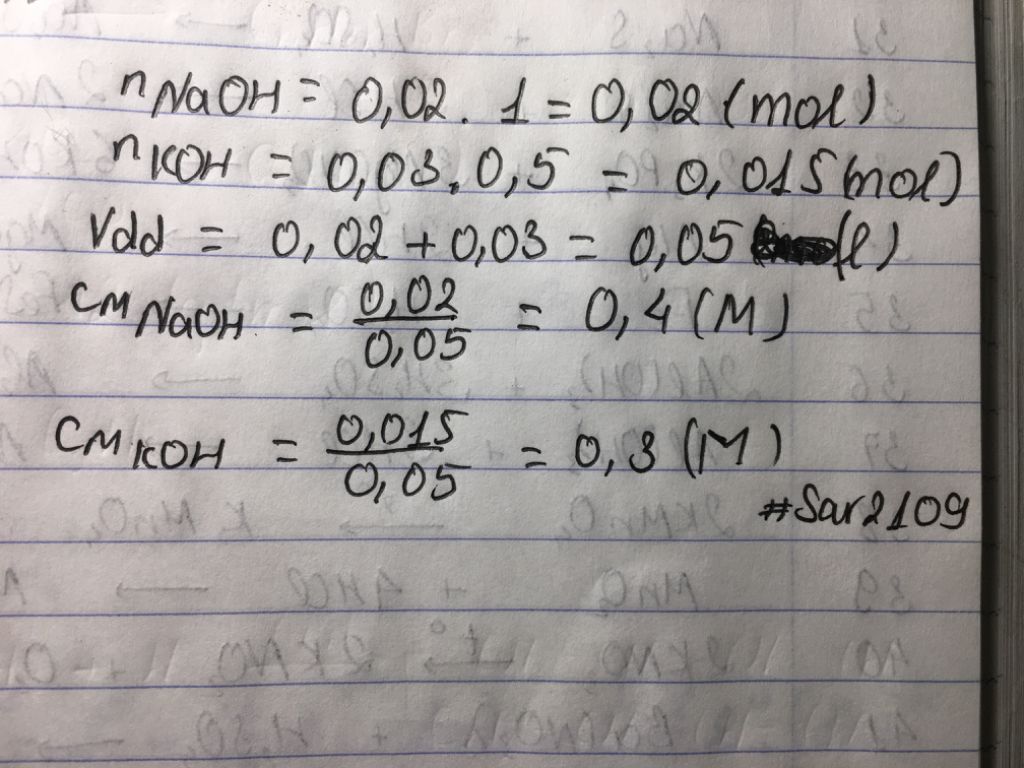 nNaOH = 0,02 . 1 = 0,02 (mol)
nKOH = 0,03 . 0,5 = 0,015 (mol)
Vdd = 0,02 + 0,03 = 0,05 (l)
CM NaOH = 0,02 / 0,05 = 0,4 (M)
CM KOH = 0,015 / 0,05 = 0,3 (M)
#Sar2109